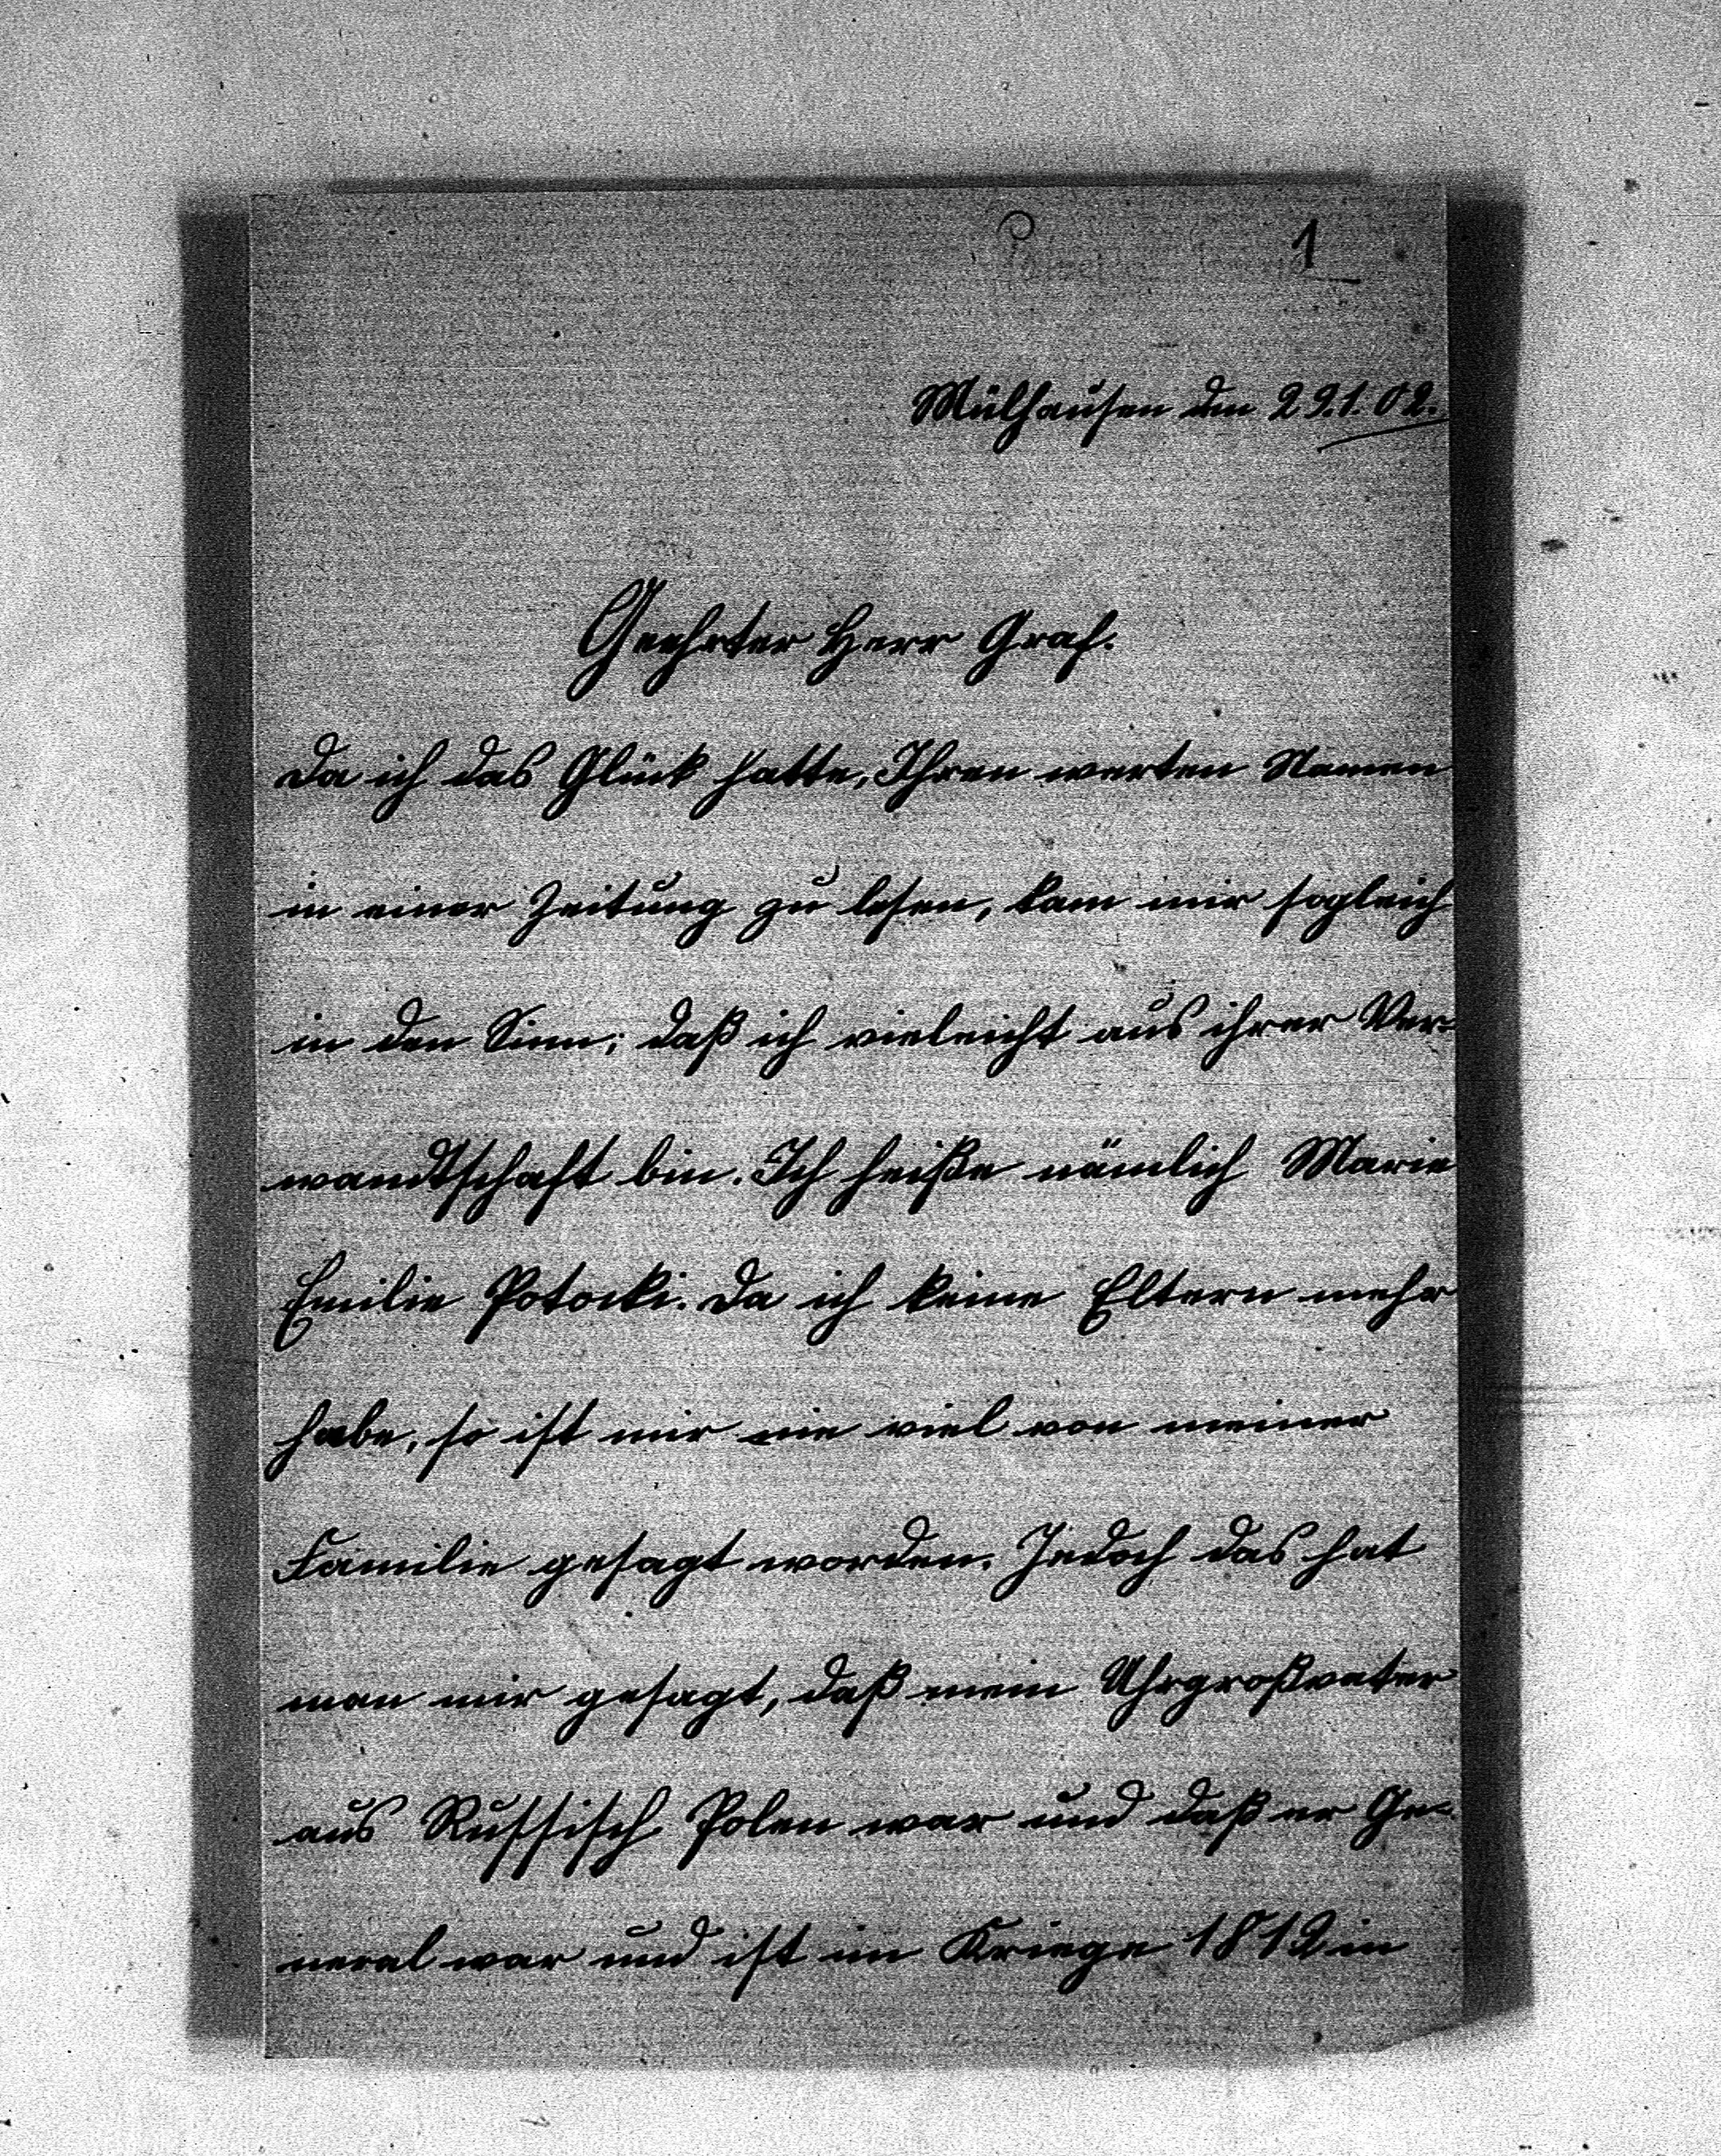 1
Mülhausen den 29.1.02.
Geehrter Herr Graf.
Da ich das Glück hatte, Ihren werten Namen
in einer Zeitung zu lesen, kam mir sogleich
in den Sinn; daß ich vieleicht aus ihrer Ver=
wandtschaft bin. Ich heiße nämlich Marie
Emilie Potocki. Da ich keine Eltern mehr
habe, so ist mir nie viel von meiner
Familie gesagt worden. Jedoch das hat
man mir gesagt, daß mein Uhrgroßvater
aus Russisch Polen war und daß er Ge=
neral war und ist im Kriege 1812 in